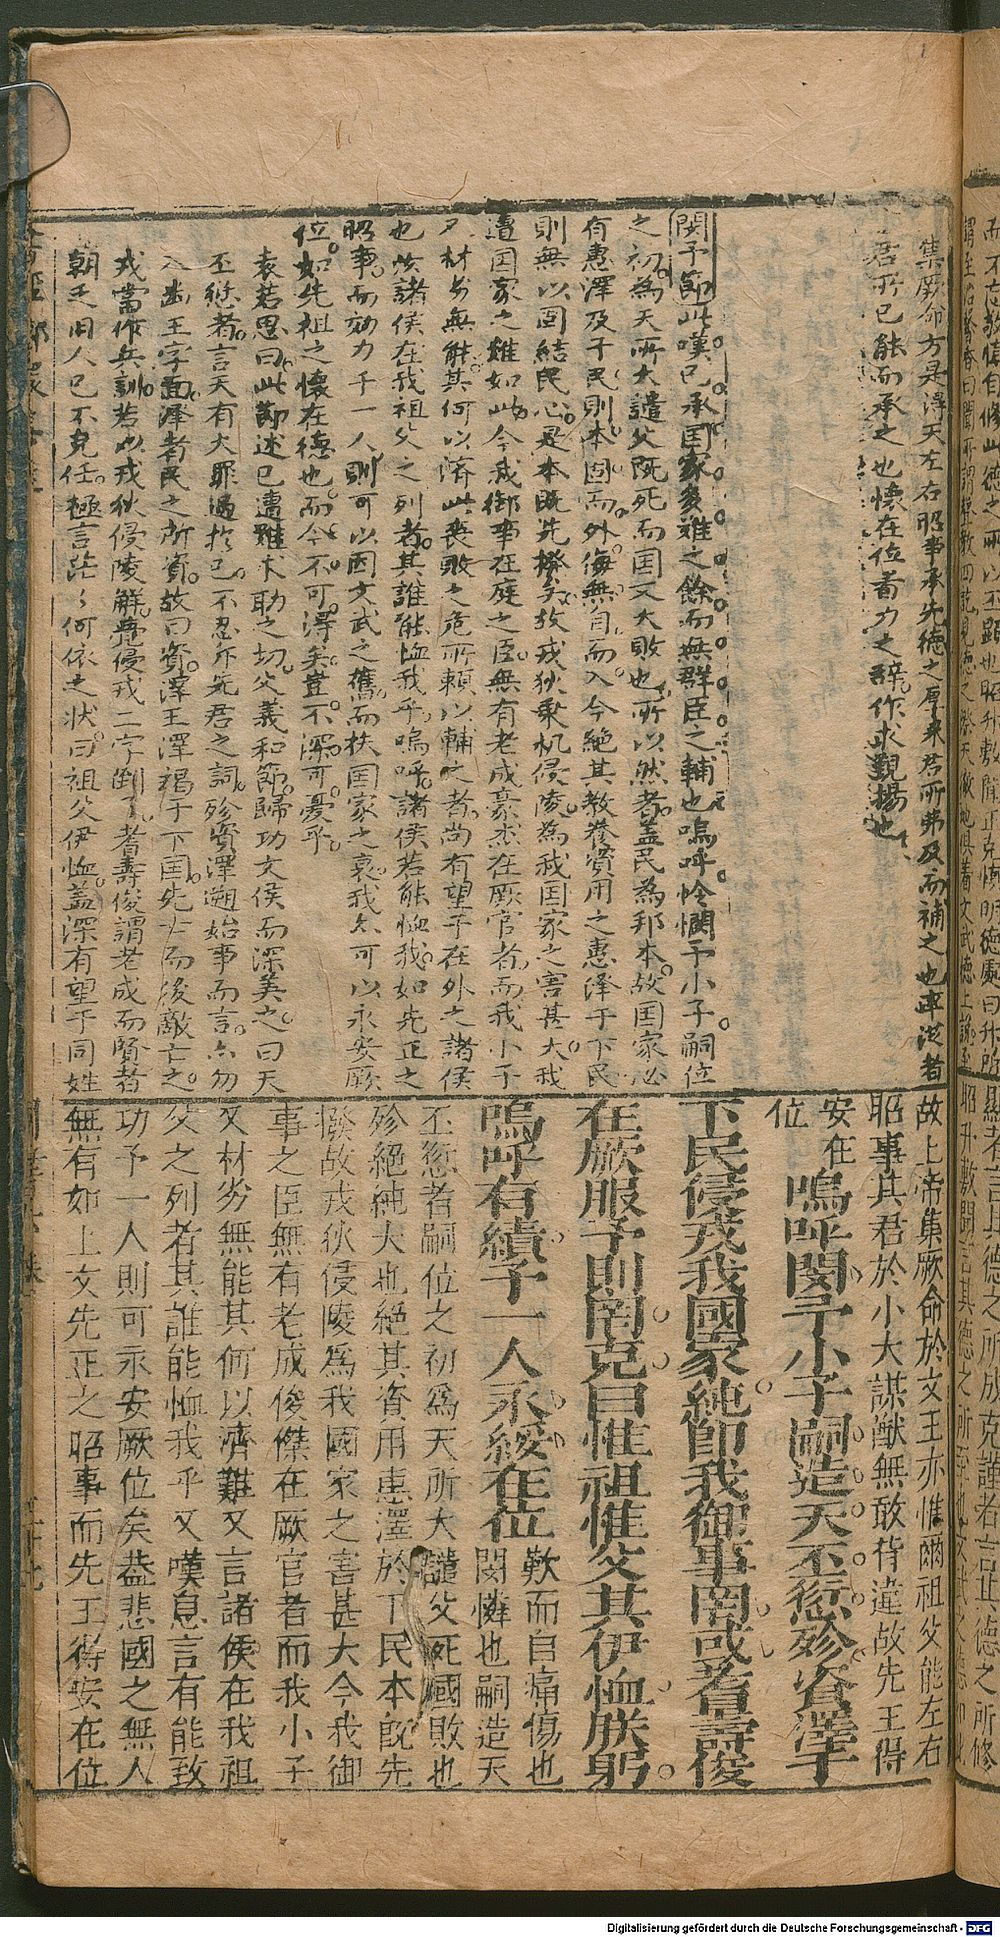 集厥命方是淂天左右昭事承先德之厚來君所弗及而補之也率從者
君所已能而承之也懷在位着力之辭作求觀揚也
閔予節此嘆己承国家多难之餘而無群臣之輔也嗚呼怜憫予小子嗣位
之初為天所大譴父既死而国又大敗也所以然者盖民為邦本故国家必
有惠澤及于民則本固而外侮無自而入今絶其教養資用之惠泽于下民
則無以固結民心是本既先撥矣故戎狄乗机侵陵為我国家之害甚大我
遭国家之难如此今我御事在庭之臣無有老成豪杰在厥官者而我小子
又材劣無能其何以済此丧敗之危所頼以輔之者尚有望于在外之諸侯
也汝諸侯在我祖父之列者其誰能恤我乎嗚呼諸侯若能恤我如先正之
昭事而効力于一人則可以因文武之舊而扶国家之衰我亦可以永安厥
位如先祖之懷在德也而今不可淂矣豈不深可憂乎
袁若思曰此節述己遭難求助之切父義和節歸功文侯而深美之曰天
丕愆者言天有大罪過於己不忍斥先君之詞殄資澤遡始事而言亦勿
幽王字面澤者民之所資故曰資澤王澤竭于下国先亡而後敵亡之
戎當作兵訓若以戎狄侵陵觧覺侵戎二字倒了耆壽俊謂老成而賢者
朝之旧人已不克任極言茫々何依之状曰祖父伊恤盖深有望于同姓
故上帝集厥命於文王亦惟爾祖父能左右
昭事其君於小大謀猷無敢背違故先王得
安在
位
嗚呼閔予小子嗣造天丕愆殄資澤于
下民侵戎我國家純即我御事罔或耆壽俊
在厥服予則罔克曰惟祖惟父其伊恤朕躬
嗚呼有績予一人永綏在位
歎而自痛傷也
閔憐也嗣造天
丕愆者嗣位之初爲天所大譴父死國敗也
殄絕純大也絕其資用惠澤於下民本既先
撥故戎狄侵陵爲我國家之害甚大今我御
事之臣無有老成俊傑在厥官者而我小子
又材劣無能其何以濟難又言諸侯在我祖
父之列者其誰能恤我乎又嘆息言有能致
功予一人則可永安厥位矣葢悲國之無人
無有如上文先正之昭事而先王得安在位
Digitalisierung gefördert durch die Deutsche Forschungsgemeinschaft - DFG